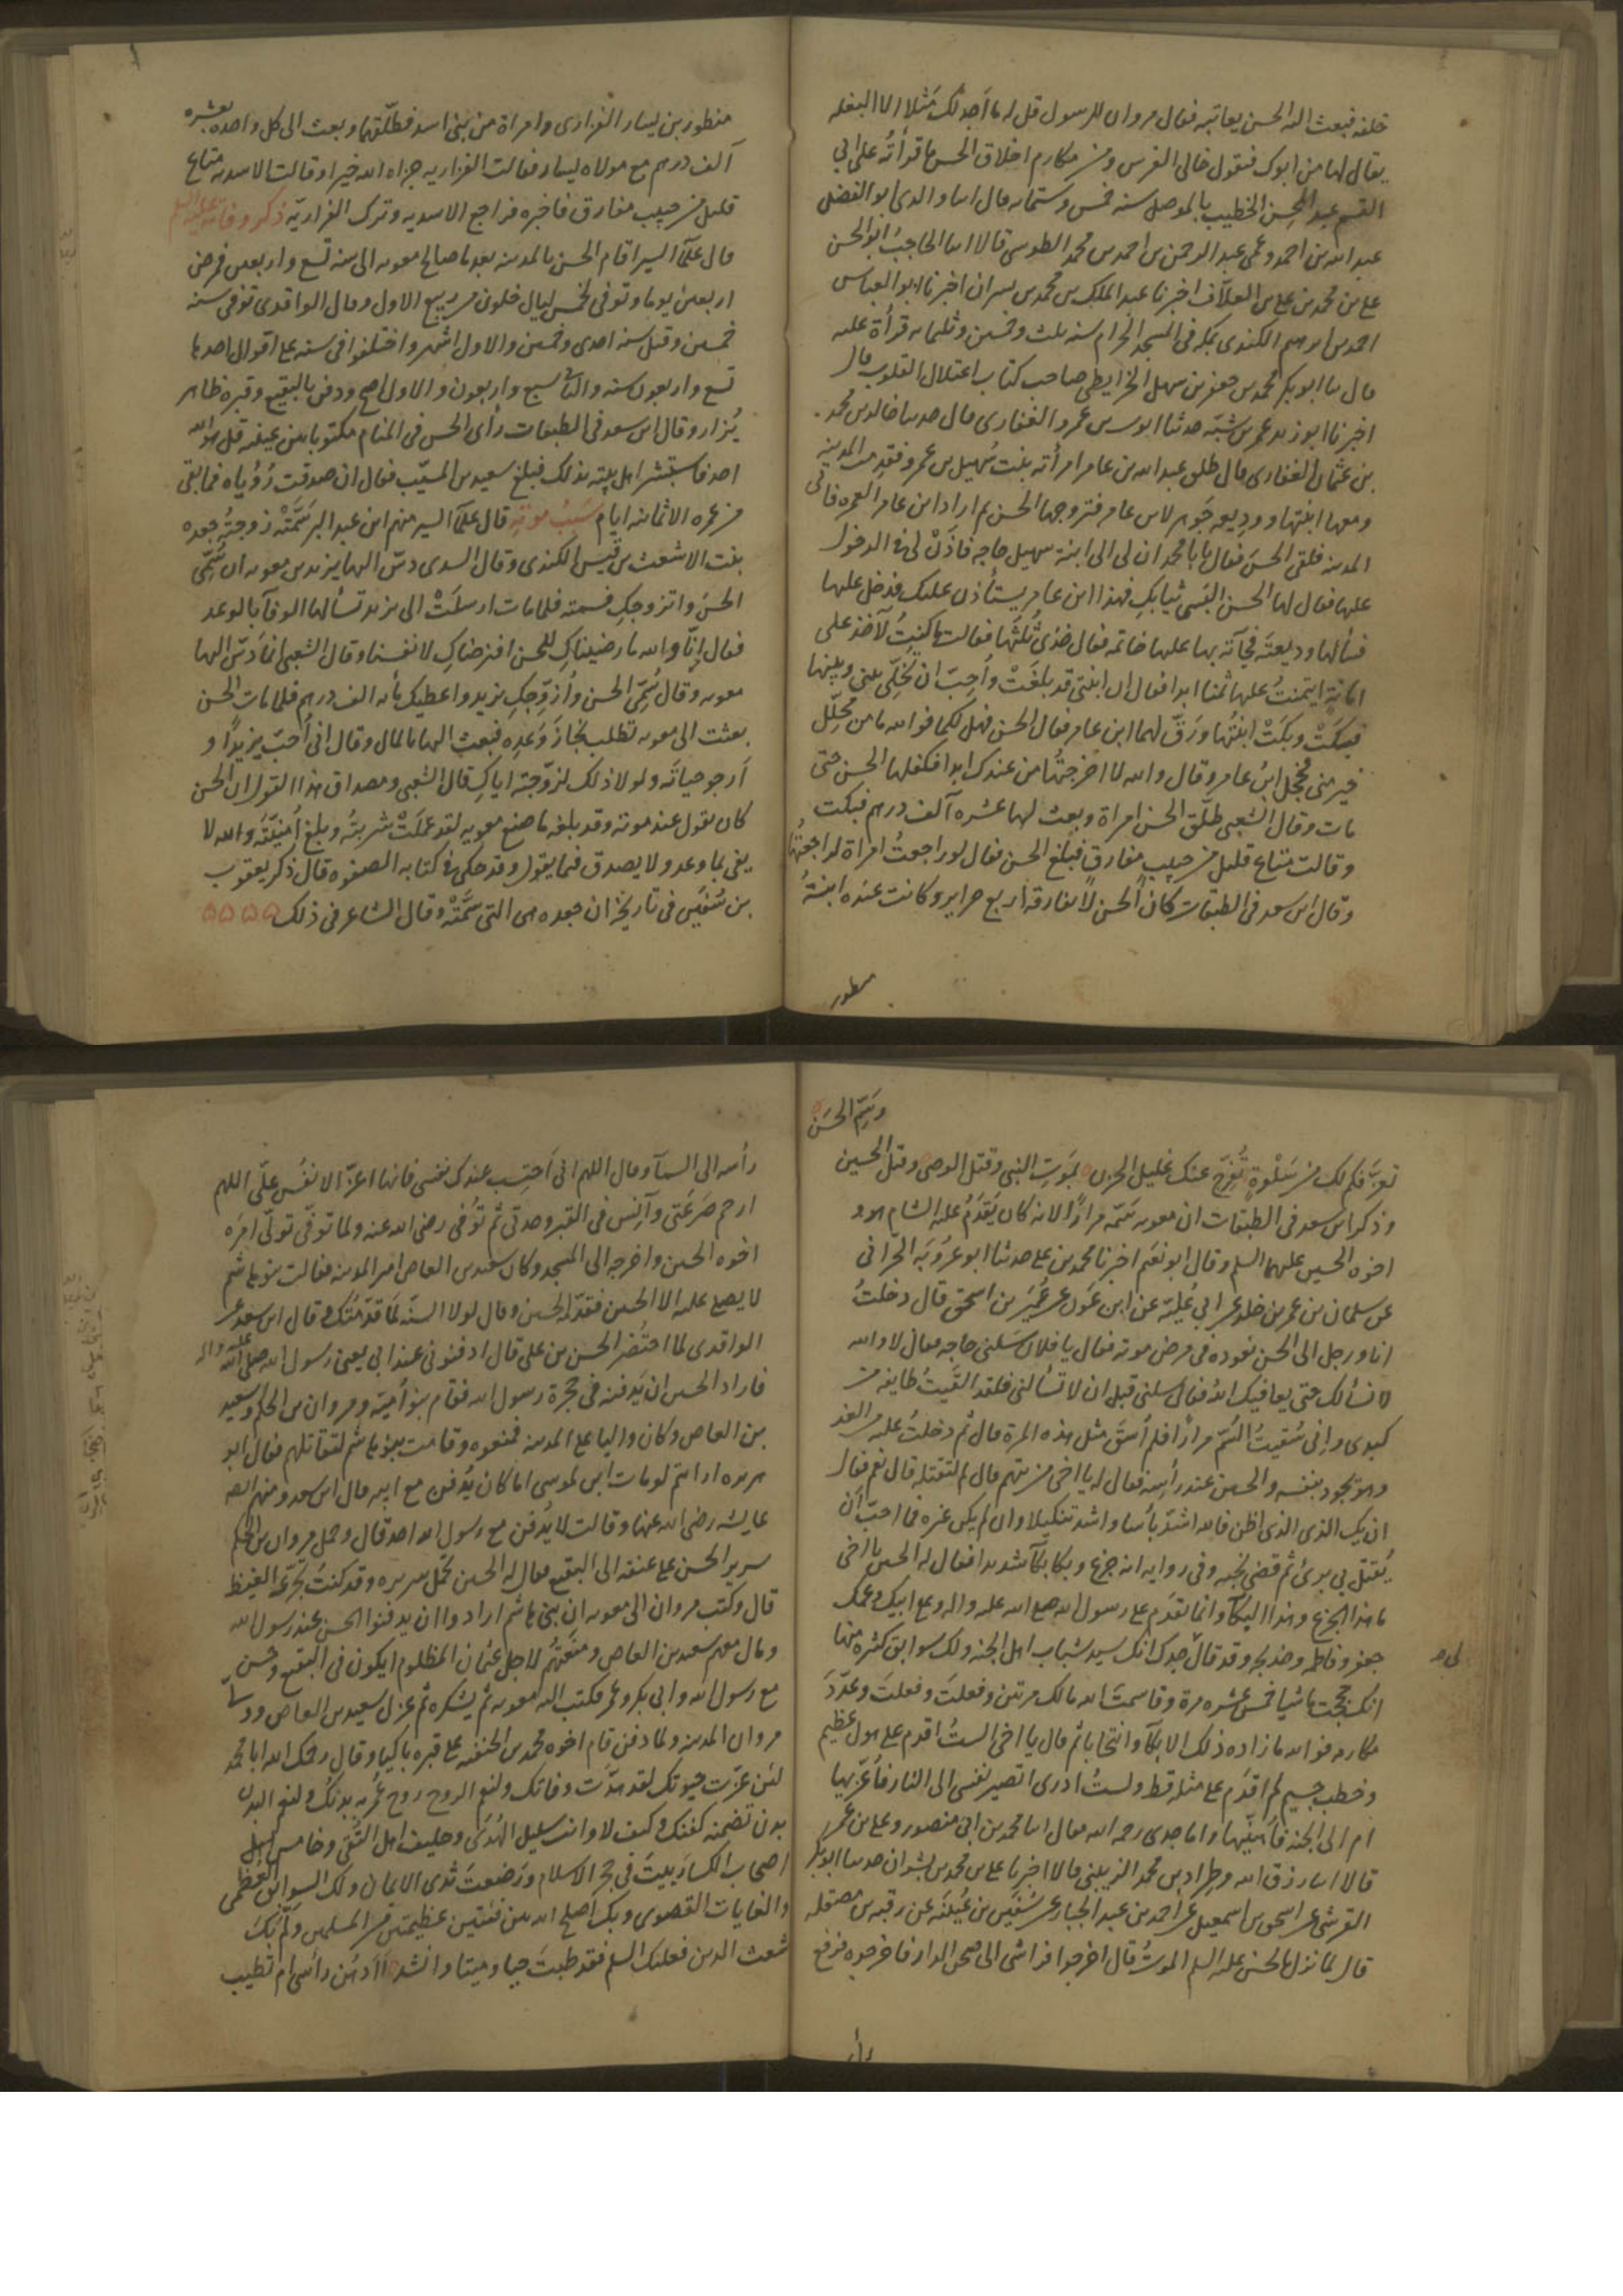 خلفه فبعث اليه الحسن يعاتبه فقال مروان للرسول قل له ما اجد لك مثلا الا البغله
يقال لها من ابوك فتقول خالى الفرس ومن مكارم اخلاق الحسن ما قرأته على ابي
القسم عبد المحسن الخطيب بالموصل سنه خمس وستمايه قال انبا والدى ابو الفضل
عبد الله بن احمد وعمى عبد الرحمن بن احمد بن محمد الطوسى قالا انبا الحاجب ابو الحسن
على بن محمد بن على بن العلاف اخبرنا عبد الملك بن محمد بن بسران اخبرنا ابو العباس
احمد بن ابرهيم الكندى بمكه فى المسجد الحرام سنه ثلث وخمسين وثلثمايه قرأة عليه
قال ثنا ابو بكر محمد بن جعفر بن سهل الخرايطى صاحب كتاب اعتلال القلوب قال
اخبرنا ابو زيد عمر بن شبّه حدثنا ابو عمرو الغفارى قال حدثنا خالد بن محمد
بن عثمان الغفارى قال طلق عبد الله بن عامر امرأته بنت سهيل بن عمرو فقدمت المدينه
ومعها ابنتها ووديعه جوهر لابن عامر فتزوجها الحسن ثم اراد ابن عامر العمره فاتى
المدينه فلقى الحسن فقال يابا محمد ان لى الى ابنة سهيل حاجه فأذن لى فى الدخول
عليها فقال لها الحسن البسى ثيابكِ فهذا ابن عامر يستأذن عليك فدخل عليها
فسألها وديعته فجآته بها عليها خاتمه فقال خذى ثلثها فقالت ما كنت لآخذ على
امانة ايتمنت عليها ثمنا ابدا فقال ان ابنتى قد بلغت واحب ان تخلى بينى وبينها
فبكت وبكت ابنتها ورقّ لهما ابن عامر فقال الحسن فهل لكما فوالله ما من محلل
خير منى فخجل ابن عامر وقال والله لا اخرجتها من عندك ابدا فكفلها الحسن حتى
مات وقال الشعبى طلّق الحسن امراة وبعث لها عشره آلف درهم فبكت
وقالت متاع قليل من حبيب مفارق فبلغ الحسن فقال لو راجعت امراة لراجعتها
وقال ابن سعد فى الطبقات كان الحسن لا تفارقه اربع حراير وكانت عنده ابنة
منظور
منظور بن يسار الفزارى وامراة من بنى اسد فطلّقهما وبعث الى كل واحده بعشره
آلف درهم مع مولاه يسار فقالت الفزاريه جزاه الله خيرا وقالت الاسديه متاع
قليل من حبيب مفارق فاخبره فراجع الاسديه وترك الفزاريّه ذكر وفاته عليه السلم
قال علمآ السير اقام الحسن بالمدينه بعد ما صالح معويه الى سنه تسع واربعين فمرض
اربعين يوما وتوفى لخمس ليال خلون من ربيع الاول وقال الواقدى توفى سنه
خمسين وقيل سنه احدى وخمسين والاول اشهر واختلفوا فى سنه على اقوال احدها
تسع واربعون سنه والثانى سبع واربعون والاول اصح ودفن بالبقيع وقبره ظاهر
يُزار وقال ابن سعد فى الطبقات رأى الحسن فى المنام مكتوبا بين عينيه قل هو الله
احد فاستبشر اهل بيته بذلك فبلغ سعيد بن المسيّب فقال ان صدقت رؤياه فما بقى
من عمره الا ثمانيه ايام سبب موته قال علمآ السير منهم ابن عبد البر سَمّته زوجته جعده
بنت الاشعث بن قيس الكندى وقال السدى دسّ اليها يزيد بن معويه ان سُمّى
الحسن واتزوجكِ فسمته فلما مات ارسلتْ الى يزيد تسألها الوفآ بالوعد
فقال انّا والله ما رضيناكِ للحسن افنرضاكِ لانفسنا وقال الشعبى انما دسّ اليها
معويه وقال سُمّى الحسن وأزوّجكِ يزيد واعطيك مأيه الف درهم فلما مات الحسن
بعثت الى معويه تطلب نجاز وعده فبعث اليها بالمال وقال انى احبّ يزيدًا و
ارجو حياته ولولا ذلك لزوّجته اياكِ قال الشعبى ومصداق هذا القول ان الحسن
كان يقول عند موته وقد بلغه ما صنع معويه لقد عملت شربته وبلغ امنيّته والله لا
يفى بما وعد ولا يصدق فيما يقول وقد حكى فى كتابه الصفوه قال ذكر يعقوب
بن سُفيَن فى تاريخه ان جعده هى التى سَمّتْه وقال الشاعر فى ذلك
وسَمّ الحسَن
تعزّ فكم لك من سَلْوةٍ تُفرّج عنك غليل الحزن بموت النبى وقتل الوصى وقتل الحسين
وذكر ابن سعد فى الطبقات ان معويه سَمّه مرارًا لانه كان يقدم عليه الشام هو و
اخوه الحسين عليهما السلم وقال ابو نعيم اخبرنا محمد بن على حدثنا ابو عروبَه الحرّانى
عن سلمان بن عمر بن خلد عن ابن عُليّه عن ابن عون عن عُمير بن اسحق قال دخلتُ
انا ورجل الى الحسن نعوده فى مرض موته فقال يا فلان سَلنى حاجه فقال لا والله
لا نسألك حتى يعافيك الله فقال سلنى قبل ان لا تسألنى فلقد القيت طايفه من
كبدى وانى سُقيتُ السّم مرارًا فلم اُسْقَ مثل هذه المرة قال ثم دخلتُ عليه من الغد
وهو يجود بنفسه والحسين عند رأسه فقال له يا اخى من تتهم قال لم لتقتله قال نعم فقال
ان يك الذى اظن فالله اشدّ بأسا واشد تنكيلا وان لم يكن غيره فما احبّ ان
يُقتل بى برئ ثم قضى نحبه وفى روايه انه جزع وبكا بكآ شديدا فقال له الحسين يا اخى
ما هذا الجزع وهذا البكآ وانما تقدم على رسول الله صلى الله عليه واله وعلى ابيك وعمك
جعفر وفاطمه وخديجه وقد قال جدك انك سيد شباب اهل الجنه ولك سوابق كثيره منها
انك حججت ماشيا خمس عشره مرة وقاسمت الله مالك مرتين وفعلت وفعلت وعدّد
مكارمه فوالله ما زاده ذلك الا بكآ وانتحابا ثم قال يا اخى الستُ اقدم على هول عظيم
وخطب جسيم لم اقدم على مثله قط ولستُ ادرى اتصير نفسى الى النار فاُعزّيها
ام الى الجنه فاُهنّيها وانبا جدى رحمه الله فقال انبا محمد بن ابى منصور وعلى بن عمر
قالا انبا رزق الله وطِراد بن محمد الزينبى قالا اخبرنا على بن محمد بن بشران حدثنا ابو بكر
القرشى عن اسحق بن اسمعيل عن احمد بن عبد الجبار عن سُفيَن بن عُيينَه عن رقبه بن مصقله
قال لما نزل بالحسن عليه السلم الموتُ قال اخرجوا فراشى الى صحن الدار فاخرجوه فرفع
رأسه الى السمآ وقال اللهم انى احتسب عندك نفسى فانها اعزّ الانفُس علَىّ اللهم
ارحم صَرعَتى وآنِسْ فى القبر وحدتى ثم تُوفى رضى الله عنه ولما توفى تولّى امرَه
اخوه الحسين واخرجه الى المسجد وكان سعيد بن العاص امير المدينه فقالت بنو هاشم
لا يصلى عليه الا الحسين فقدّمه الحسين وقال لولا السنّه لما قدّمتُك وقال ابن سعد عن
الواقدى لما احتُضر الحسن بن على قال ادفنونى عند ابى يعنى رسول الله صلى الله عليه واله
فاراد الحسين ان يدفنه فى حجرة رسول الله فقام بنو أميّة ومروان بن الحكم وسعيد
بن العاص وكان واليا على المدينه فمنعوه وقامت بنو هاشم لتقاتلهم فقال ابو
هريره ارايتم لو مات ابن لموسى اما كان يُدفن مع ابيه قال ابن سعد ومنهم ايضا
عايشه رضى الله عنها وقالت لا يُدفن مع رسول الله احد قال وحمل مروان بن الحكم
سرير الحسن على عنقه الى البقيع فقال له الحسين تحمل سريره وقد كنتُ تجرّعه الغيظ
قال وكتب مروان الى معويه ان بنى هاشم ارادوا ان يدفنوا الحسن عند رسول الله
ومال معهم سعيد بن العاص ومنعتهُم لاجل عثمان المظلوم ايكون فى البقيع وحسن
مع رسول الله وابى بكر وعمر فكتب اليه معويه ثم يشكره ثم عزل سعيد بن العاص وولى
مروان المدينه ولما دفن قام اخوه محمد بن الحنفيه على قبره باكيا وقال رحمك الله ابا محمد
لئن عزّت حيوتك لقد هدّت وفاتك ولنعم الروح روح عُمّر به بدنك ولنعم البدن
بدن تضمنه كفنك وكيف لا وانت سليل الهُدى وحليف اهل التُقى وخامس اهل
اصحاب الكسا ربيتَ فى حجر الاسلام ورضعتَ ثدى الايمان ولك السوابق العظمى
والغايات القصوى وبك اصلح الله بين فئتين عظيمتين من المسلمين ولمّ بك
شعث الدين فعليك السلم فقد طبتَ حيا وميتا وانشد أاَدهُن رأسى ام تطيب